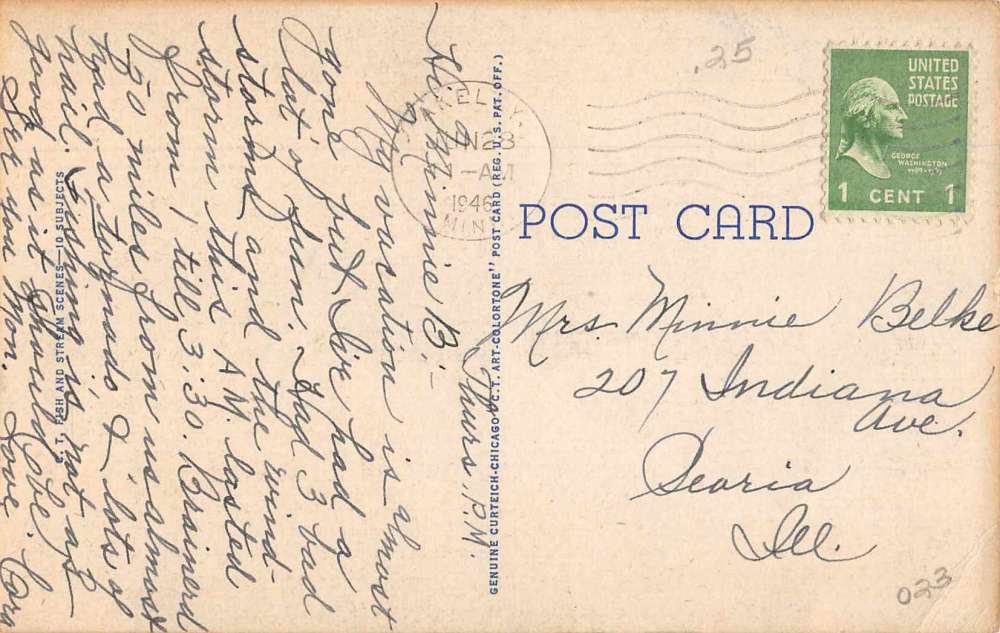 Thurs. P.M.
Hi Minnie B:-
My vacation is almost
gone but I've had a
lot of fun. Had 3 bad
storms and the wind
storm this A.M. lasted
from 1 till 3:30. Brainerd
50 miles from us almost
had a tornado & lots of
hail. Fishing is not as
good as it should be.
See you Mon. Love Cora
C. T. FISH AND STREAM SCENES—10 SUBJECTS
GENUINE CURTEICH-CHICAGO "C.T. ART-COLORTONE" POST CARD (REG. U.S. PAT. OFF.)
.25
28
-AM
1946
MINN
UNITED
STATES
POSTAGE
GEORGE
WASHINGTON
1 CENT 1
POST CARD
Mrs. Minnie Belke
207 Indiana
Ave.
Peoria
Ill.
023